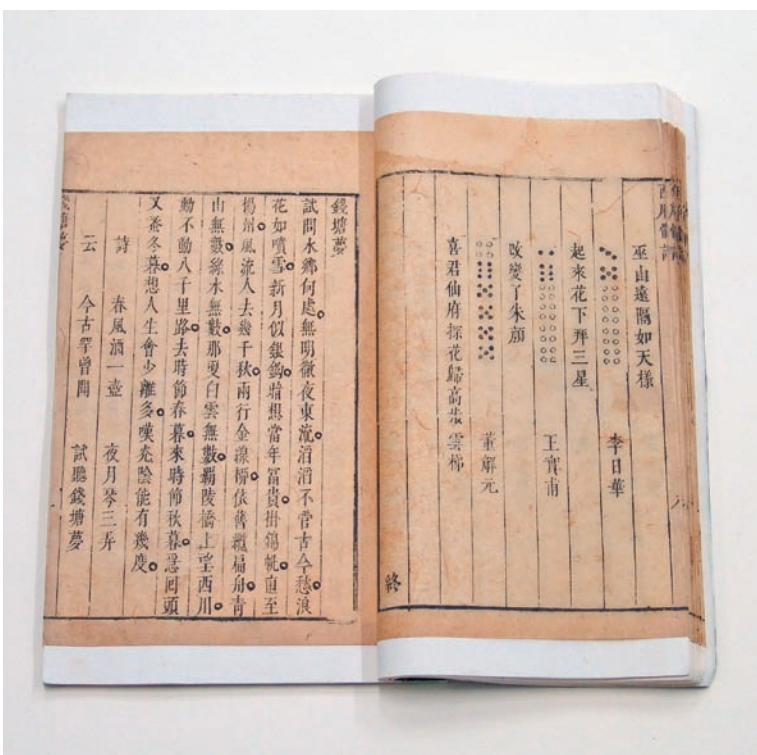 巫山遠隔如天樣
李日華
起來花下拜三星
王實甫
改變了朱顏
董解元
喜君仙府探花歸高步雲梯
終
錢塘夢
試問水鄉何處無明徹夜東流滔滔不管古今愁浪
花如噴雪新月似銀鈎暗想當年富貴掛錦帆直至
揚州風流人去幾千秋兩行金線柳依舊纜扁舟青
山無數綠水無數那更白雲無數覇陵橋上望西川
動不動八千里路去時節春暮來時節秋暮急回頭
又是冬暮想人生會少離多嘆光陰能有幾度
詩 春風酒一壺 夜月琴三弄
云 今古罕曾聞 試聽錢塘夢
錢塘夢